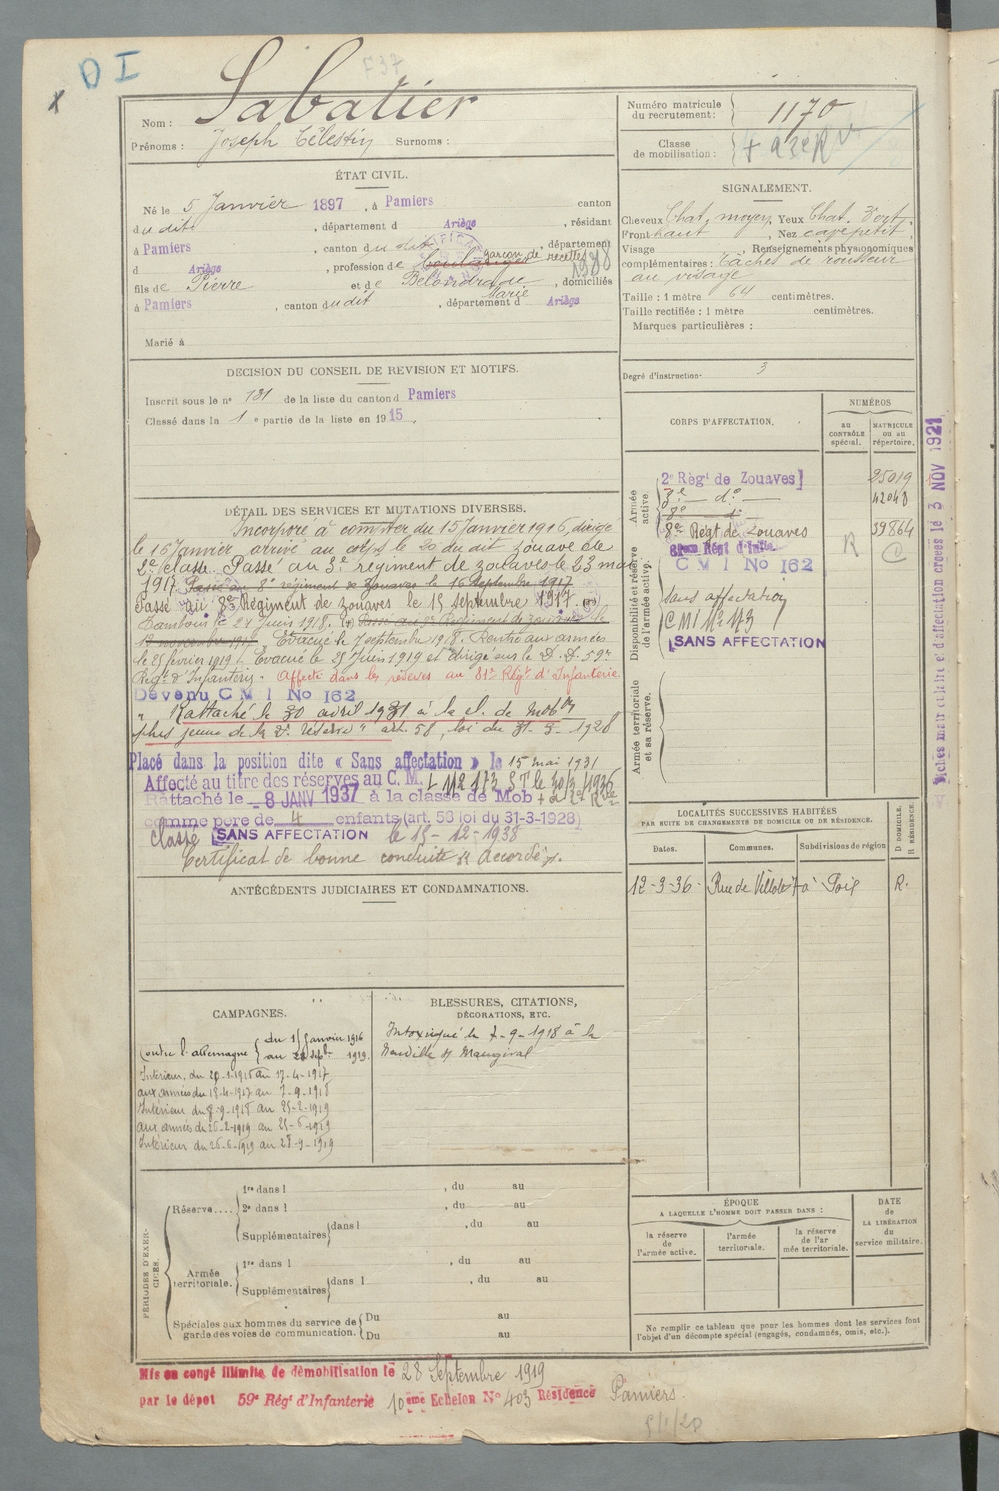 D I
F37
Nom : Sabatier
Prénoms : Joseph Célestin Surnoms :
Numéro matricule
du recrutement : 1170
Classe
de mobilisation :
ÉTAT CIVIL.
Né le 5 Janvier 1897, à Pamiers canton
du dit, département d Ariège, résidant
à Pamiers, canton du dit, département
d Ariège, profession de boulanger garçon de recettes
fils de Pierre et de Belondrade Marie, domiciliés
à Pamiers, canton du dit, département d Ariège
Marié à
SIGNALEMENT.
Cheveux Chat. moyen, Yeux Chat. Vert.
Front haut, Nez cave petit.
Visage Renseignements physionomiques
complémentaires : Tâches de rousseur
au visage
Taille : 1 mètre 64 centimètres.
Taille rectifiée : 1 mètre centimètres.
Marques particulières :
Degré d'instruction 3
DÉCISION DU CONSEIL DE REVISION ET MOTIFS.
Inscrit sous le n° 131 de la liste du canton d Pamiers
Classé dans la 1 e partie de la liste en 1915.
DÉTAIL DES SERVICES ET MUTATIONS DIVERSES.
Incorporé à compter du 15 Janvier 1916, dirigé
le 16 Janvier arrivé au corps le 20 du dit zouave de
2e classe. Passé au 3e régiment de zouaves le 23 mars
1917. Passé au 8e régiment de zouaves le 16 Septembre 1917
Passé au 8e Régiment de zouaves le 15 septembre 1917.
Tambour le 21 Juin 1918. Passé au Régiment de zouaves le
novembre 1917 Evacué le 7 septembre 1918. Rentré aux armées
le 25 février 1919. Evacué le 25 Juin 1919 et dirigé sur le D. D. 59e
Régt d'Infanterie. Affecté dans les réserves au 81e Régt d'Infanterie
Devenu C M I No 162
Rattaché le 30 avril 1931 à la cl. de mobon
plus jeune de la 2e réserve" art. 58, loi du 31-3-1928
Placé dans la position dite « Sans affectation » le 15 mai 1931
Affecté au titre des réserves au C. M. I N° 173 S T le 30/3/1936
Rattaché le 8 JANV 1937 à la classe de Mob
comme père de 4 enfants (art. 58 loi du 31-3-1928)
Classé SANS AFFECTATION le 15-12-1938
Certificat de bonne conduite "Accordé".
CORPS D'AFFECTATION.
NUMÉROS
au
CONTRÔLE
spécial.
MATRICULE
ou au
répertoire.
Armée
active.
2e Régt de Zouaves 25019
3e — do —
8e do
8e Régt de Zouaves R 39864
Disponibilité et réserve
de l'armée active.
81eme Régt d'Infie
C M I No 162
Sans affectation
CMI N° 173
SANS AFFECTATION
Armée territoriale
et sa réserve.
Fiches matriculaire et d'affectation créées le 3 NOV 1921
ANTÉCÉDENTS JUDICIAIRES ET CONDAMNATIONS.
LOCALITÉS SUCCESSIVES HABITÉES
PAR SUITE DE CHANGEMENTS DE DOMICILE OU DE RÉSIDENCE.
Dates. Communes. Subdivisions de région D DOMICILE. R RÉSIDENCE.
12-3-36 R.
CAMPAGNES.
Contre l'allemagne du 15 Janvier 1916
au Septbre 1919.
Intérieur, du 20-1-1916 au 17-4-1917
aux armées du 18-4-1917 au 7-9-1918
Intérieur du 8-9-1918 au 25-2-1919
aux armées du 26-2-1919 au 25-6-1919
Intérieur du 26-6-1919 au 28-9-1919
BLESSURES, CITATIONS,
DÉCORATIONS, ETC.
Intoxiqué le 7-9-1918 à la
Neuville
PÉRIODES D'EXERCICES.
Réserve....
1re dans l , du au
2e dans l , du au
Supplémentaires dans l , du au
Armée
territoriale.
1re dans l , du au
Supplémentaires dans l , du au
Spéciales aux hommes du service de
garde des voies de communication.
Du au
Du au
ÉPOQUE
A LAQUELLE L'HOMME DOIT PASSER DANS :
la réserve
de
l'armée active.
l'armée
territoriale.
la réserve
de l'ar
mée territoriale.
DATE
de
LA LIBÉRATION
du
service militaire.
Ne remplir ce tableau que pour les hommes dont les services font
l'objet d'un décompte spécial (engagés, condamnés, omis, etc.).
Mis en congé illimité de démobilisation le 28 Septembre 1919
par le dépôt 59e Régt d'Infanterie 10ème Echelon No 403 Résidence Pamiers.
5/1/20